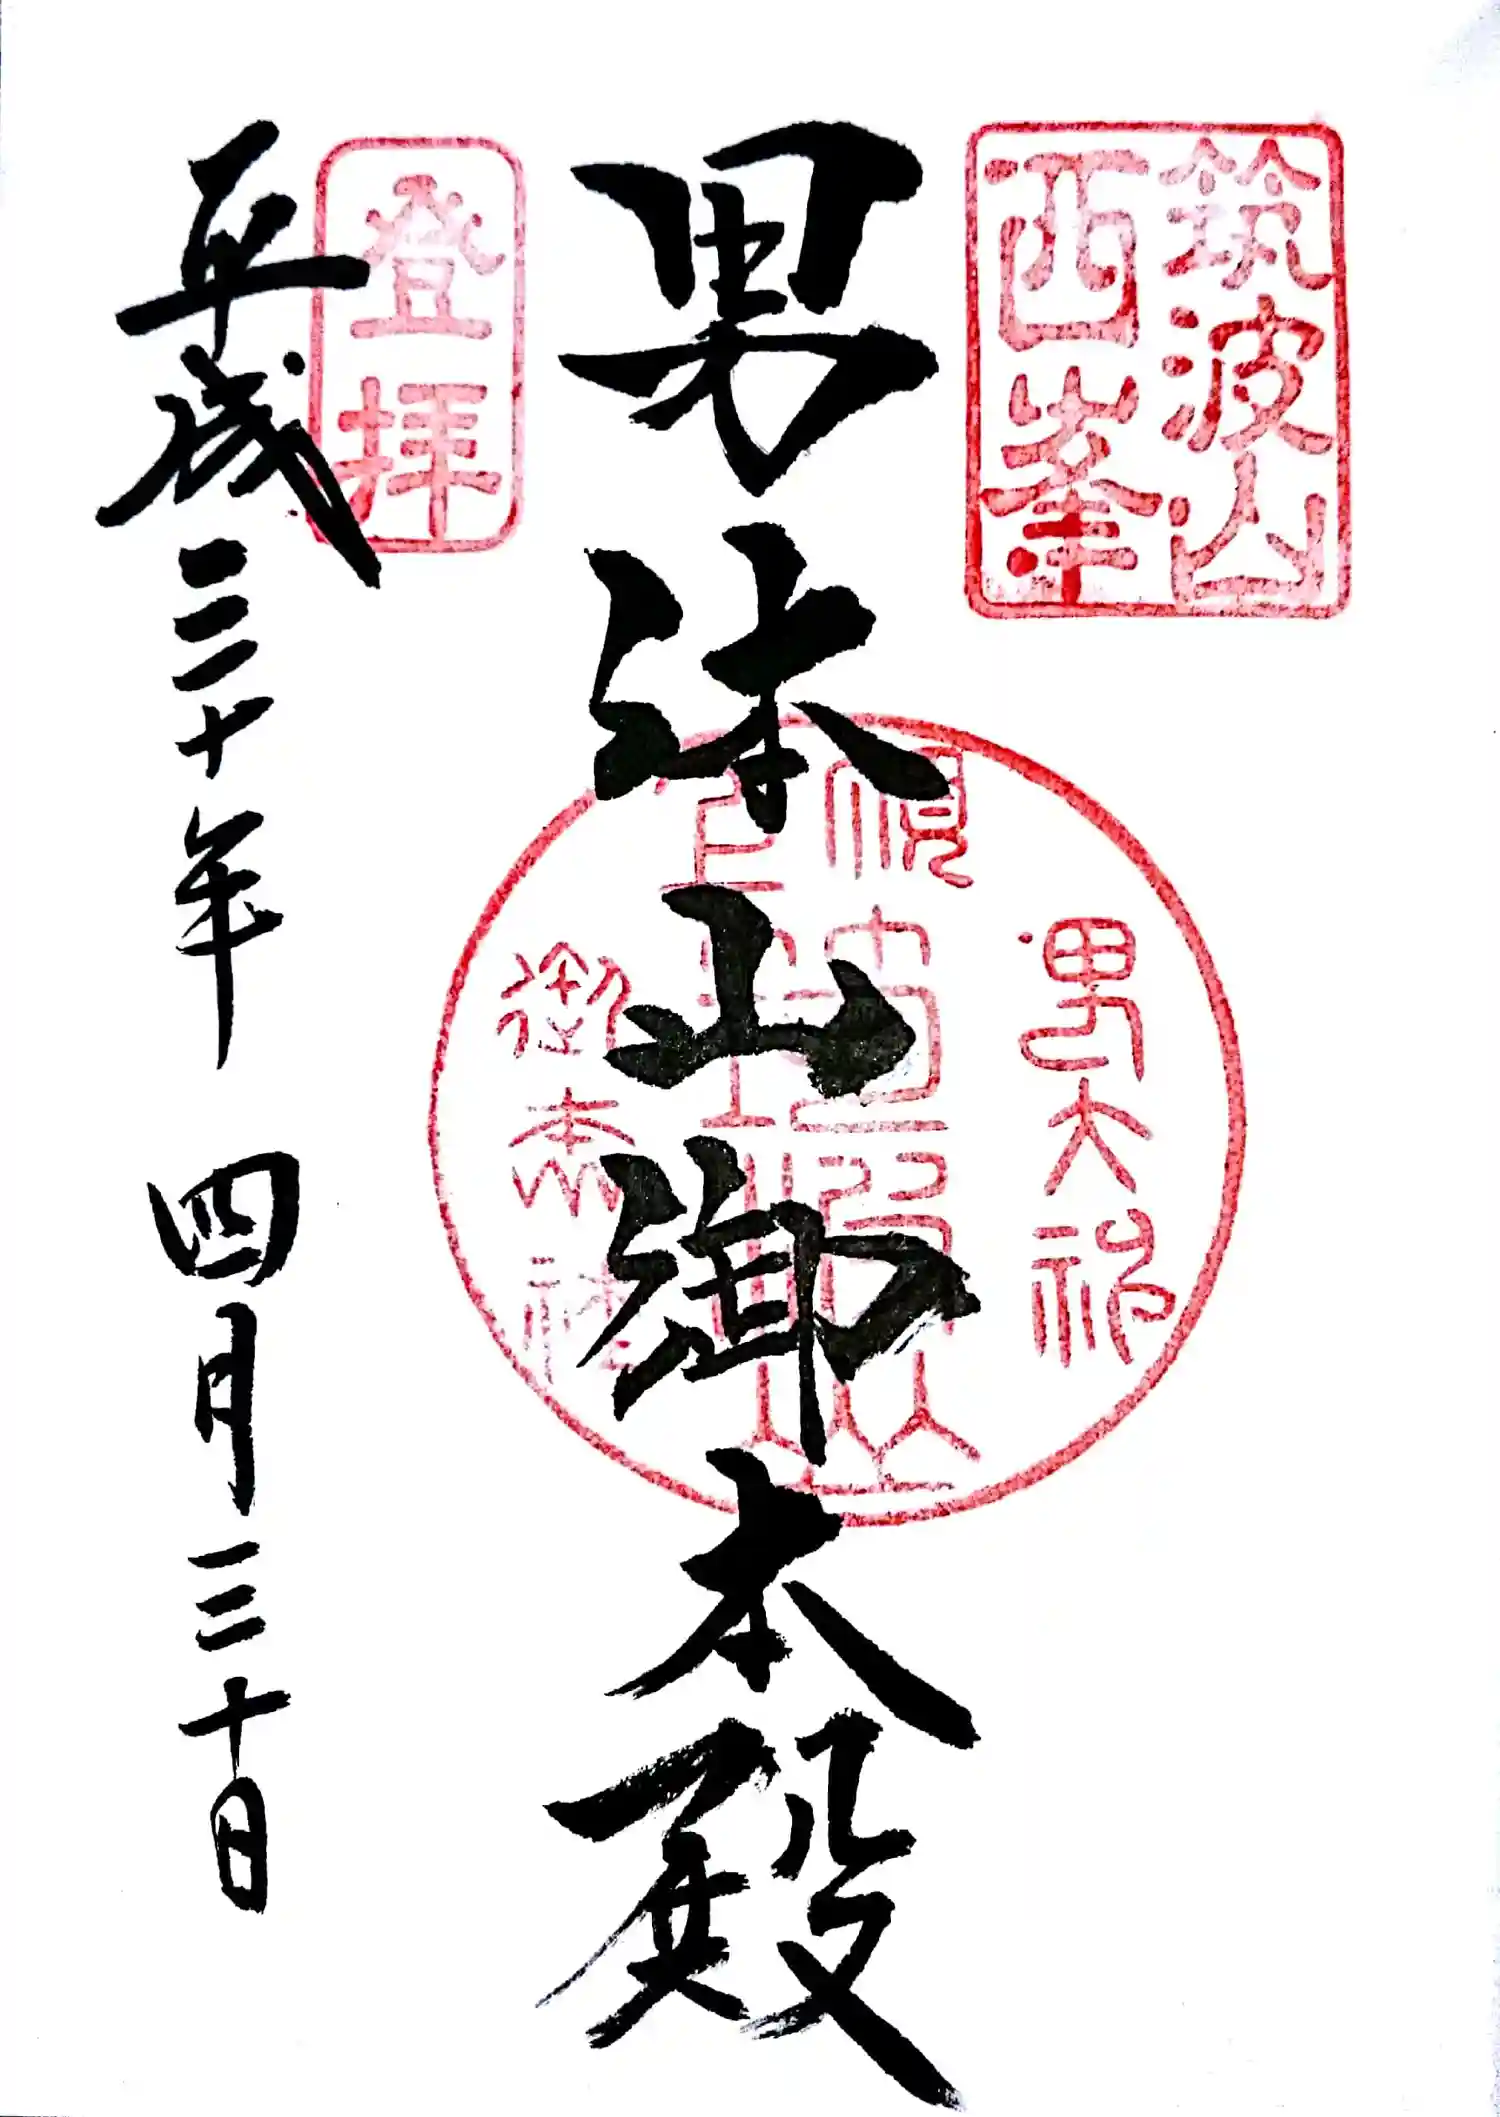 筑波山
西峯
男大神
御本社
男体山御本殿
登拝
平成三十年 四月三十日